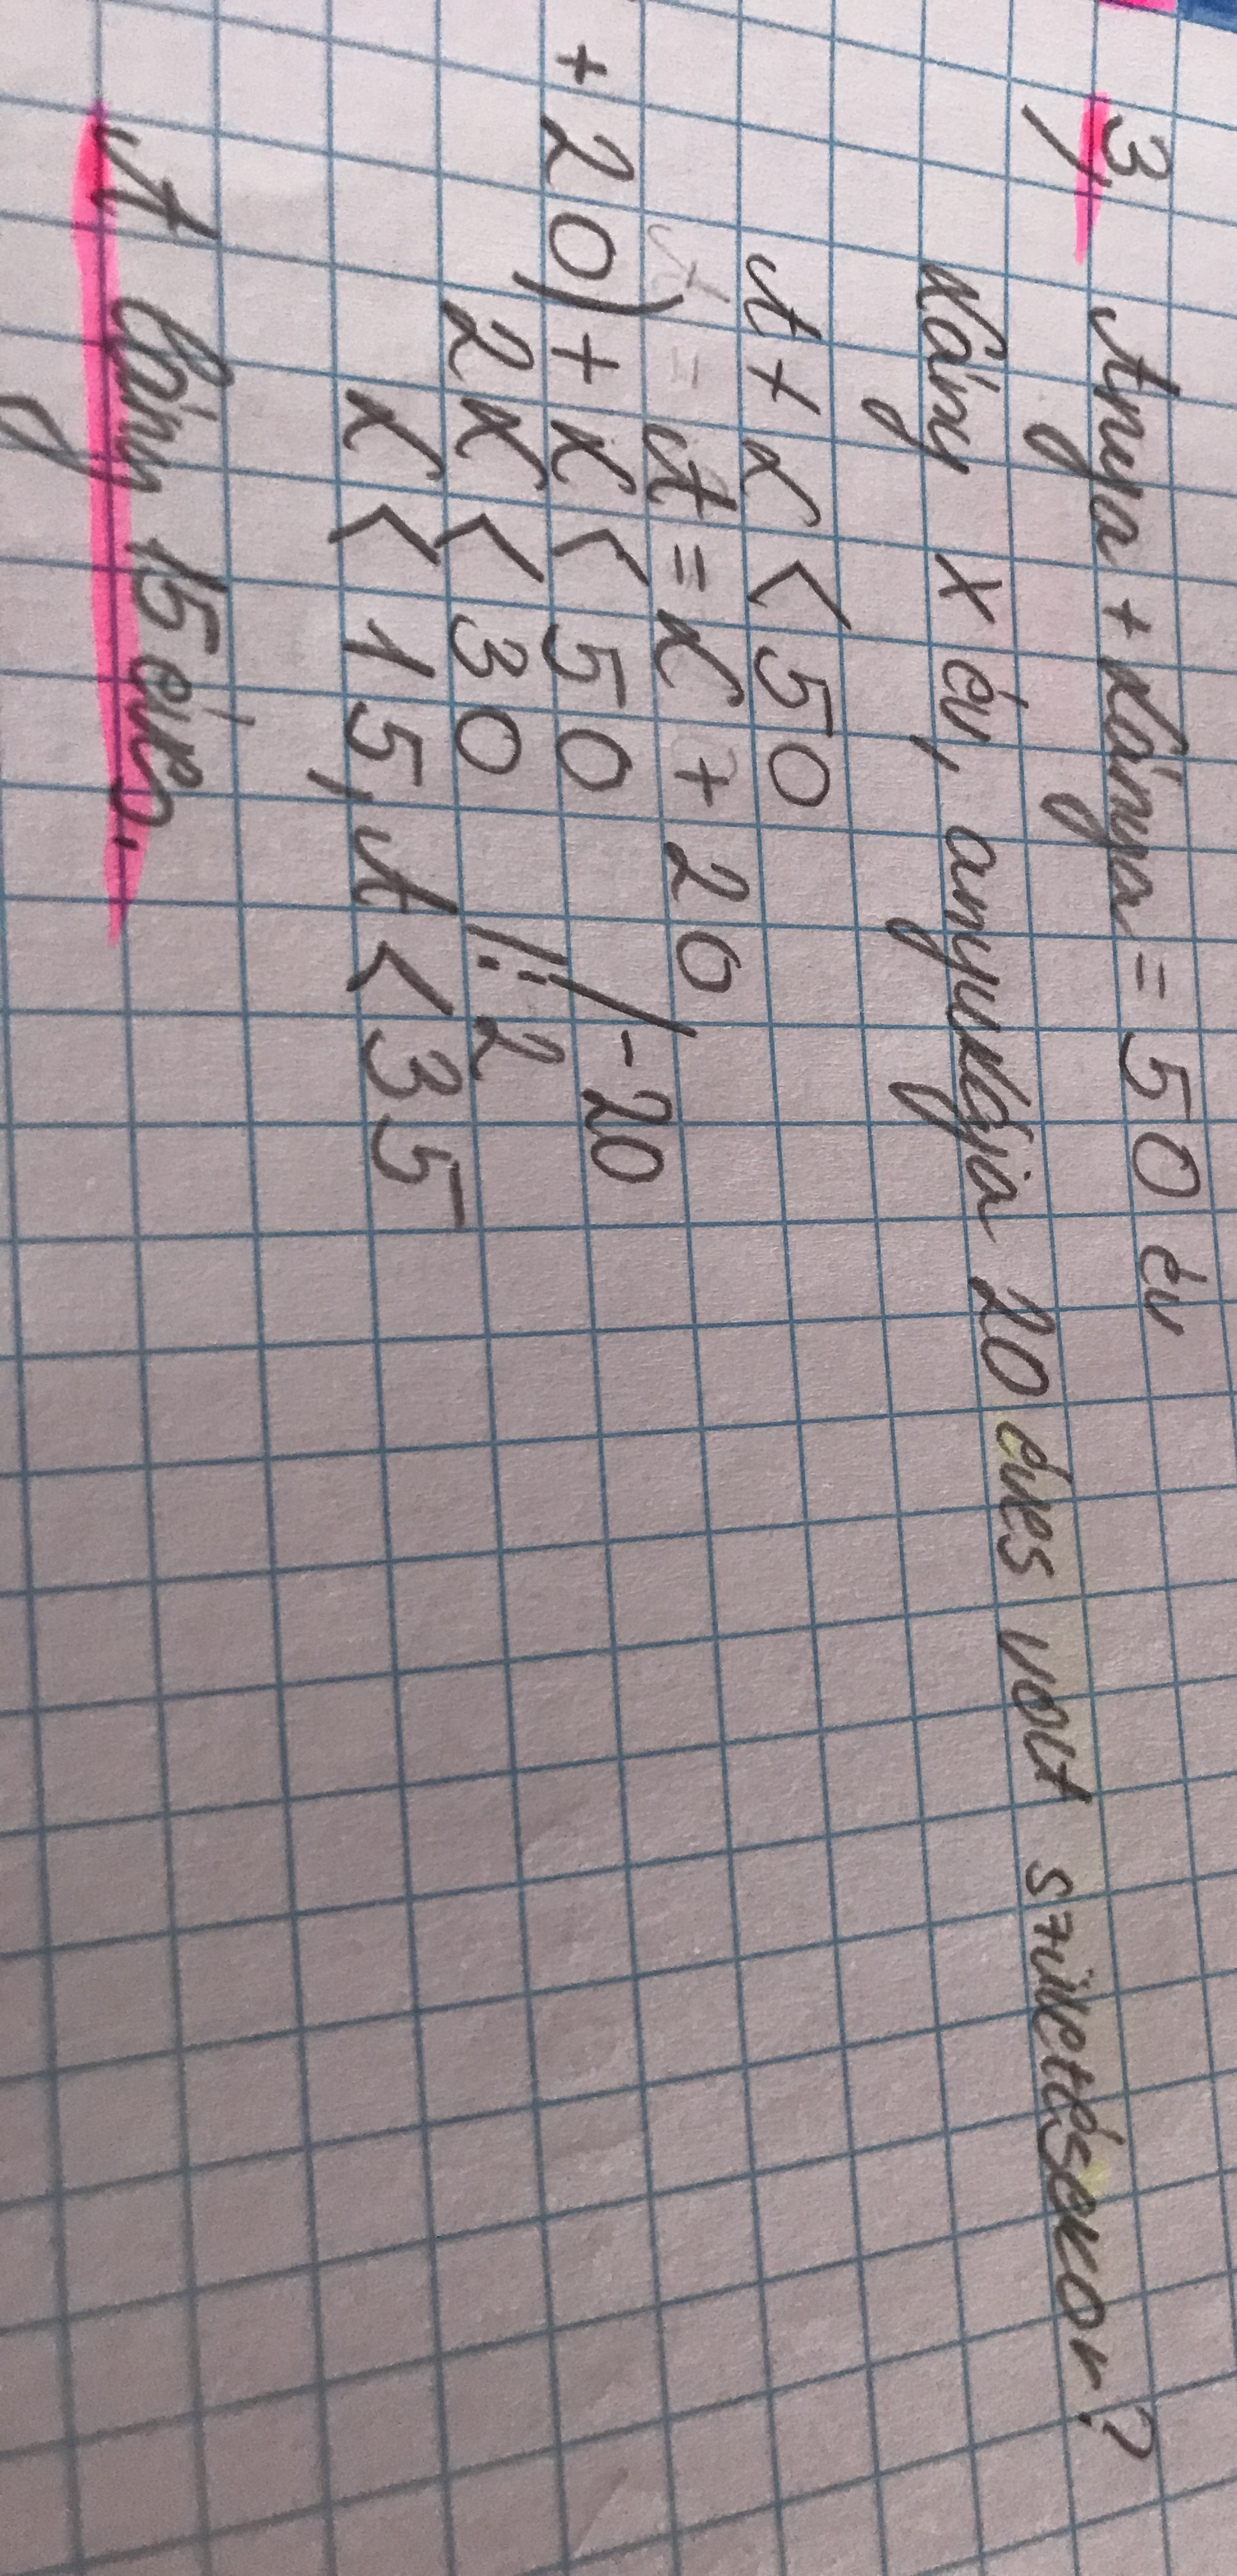 3,
Anya + Lánya = 50 év
Lány x év, anyukája 20 éves volt születésekor?
A + x < 50
A = x + 20
+ 20) + x < 50 /-20
2x < 30 /:2
x < 15, A < 35
A lány 15 éves.